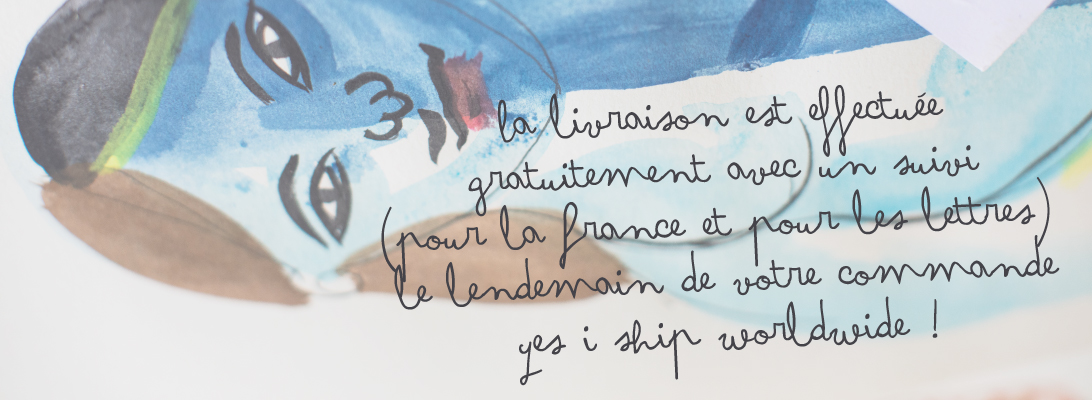 la livraison est effectuée
gratuitement avec un suivi
(pour la france et pour les lettres)
le lendemain de votre commande
yes i ship worldwide !